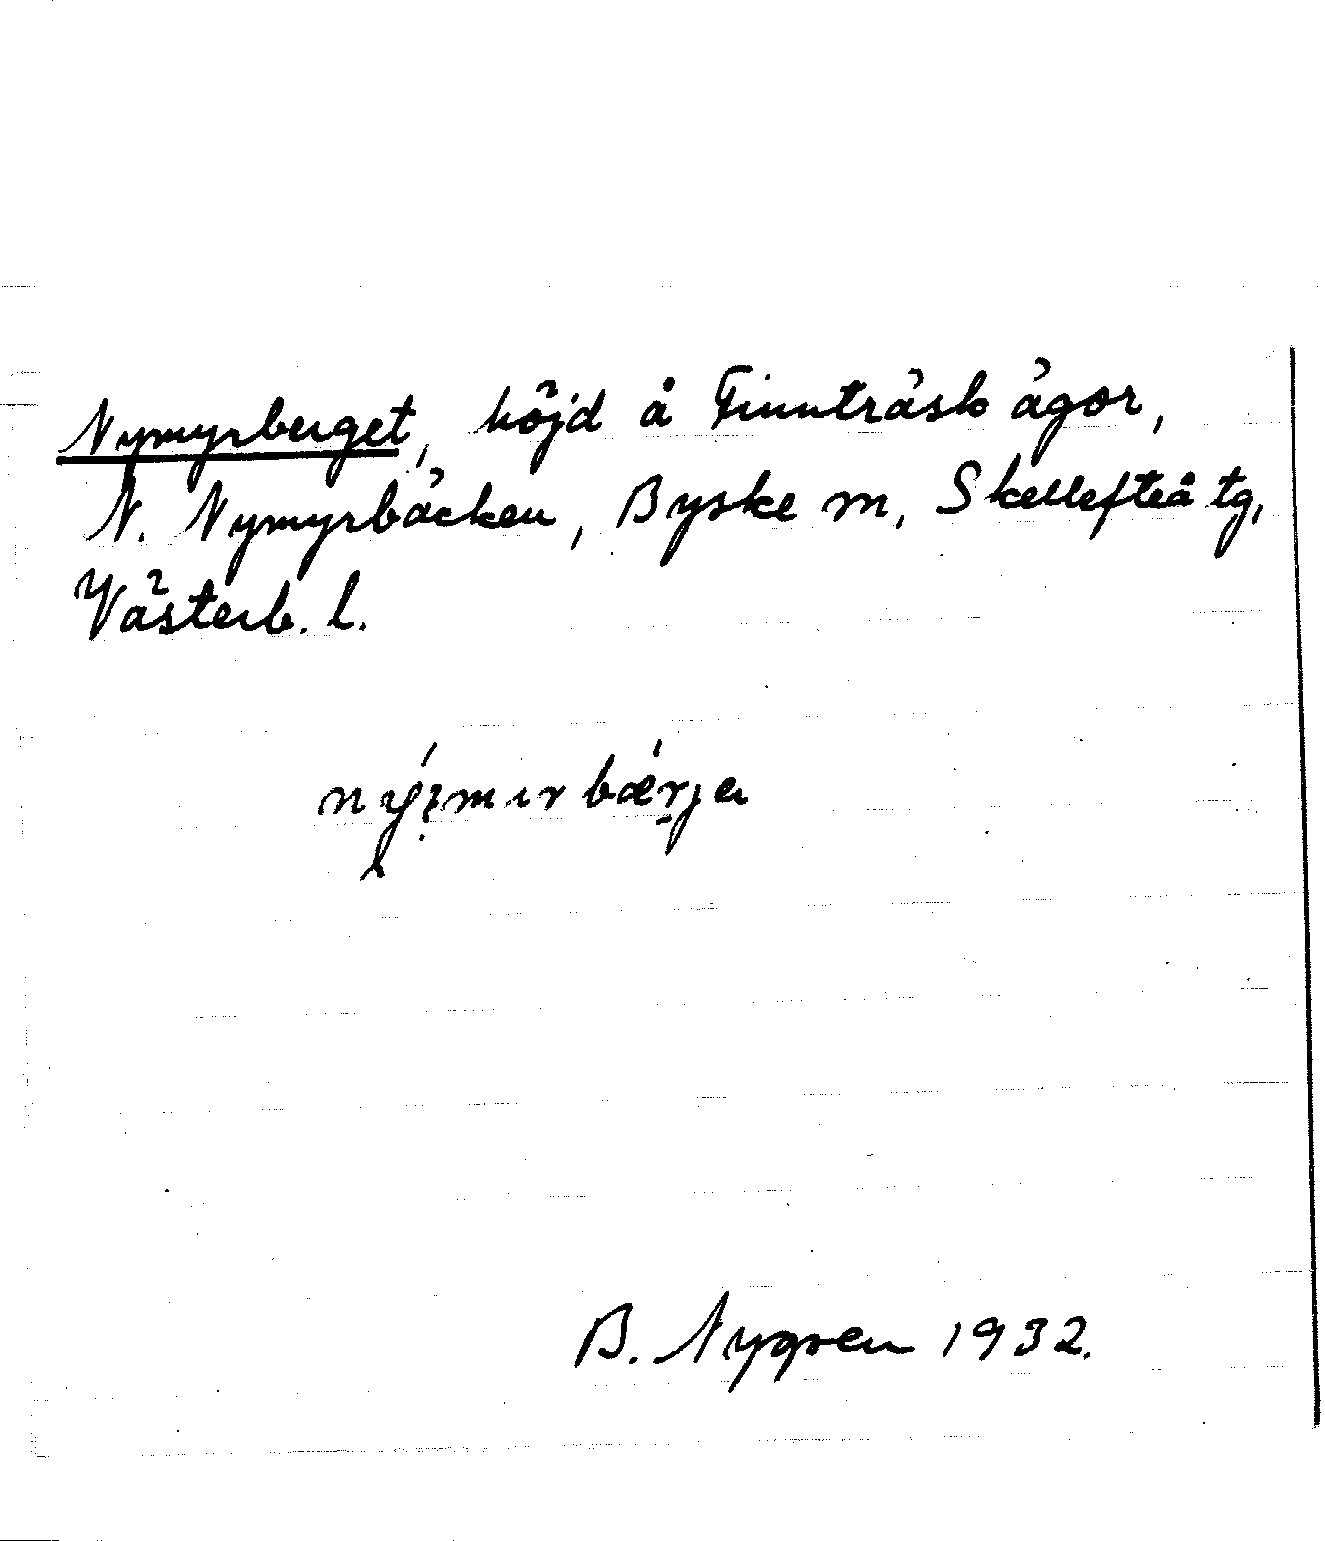 Nymyrberget, höjd å Finnträsk ägor,
N. Nymyrbäcken, Byske sn, Skellefteå tg,
Västerb. l.
nýʲmırbǽrja
B. Nygren 1932.